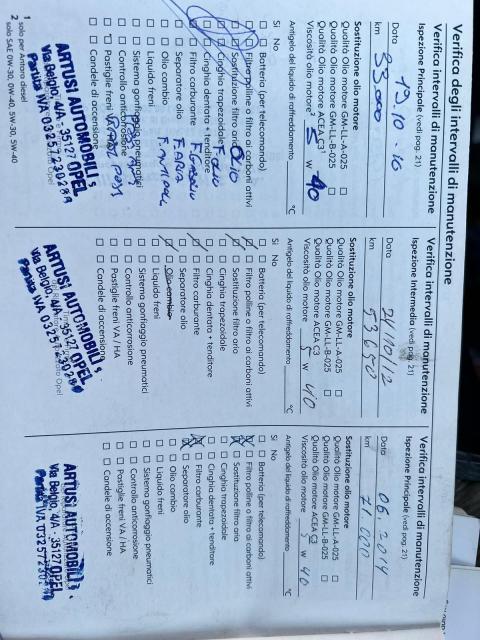 Verifica degli intervalli di manutenzione
Verifica intervalli di manutenzione
Ispezione Principale (vedi pag. 21)
Data 19.10-10
km 33.000
Sostituzione olio motore
Qualità Olio motore GM-LL-A-025 ☐
Qualità Olio motore GM-LL-B-025 ☐
Qualità Olio motore ACEA C3¹ ☐
Viscosità olio motore² 5 W 40
Antigelo del liquido di raffreddamento °C
Si No
☐ ☐ Batteria (per telecomando)
☐ ☐ Filtro polline o filtro ai carboni attivi
☐ ☐ Sostituzione filtro aria OLIO
☐ ☐ Cinghia trapezoidale F OLIO
☐ ☐ Cinghia dentata + tenditore
☐ ☐ Filtro carburante
☐ ☐ Separatore olio F. ARIA
☐ ☐ Olio cambio
☐ ☐ Liquido freni
☐ ☐ Sistema gonfiaggio pneumatici
☐ ☐ Controllo anticorrosione
☐ ☐ Pastiglie freni
☐ ☐ Candele di accensione
ARTUSI AUTOMOBILI s
Via Belgio, 4/A - 35127 OPEL
Partita IVA
1 solo per Antara diesel
2 solo SAE 0W-30, 0W-40, 5W-30, 5W-40
Verifica intervalli di manutenzione
Ispezione Intermedia (vedi pag. 21)
Data 24/10/12
km 53650
Sostituzione olio motore
Qualità Olio motore GM-LL-A-025 ☐
Qualità Olio motore GM-LL-B-025 ☐
Qualità Olio motore ACEA C3
Viscosità olio motore 5 W 40
Antigelo del liquido di raffreddamento °C
Si No
☐ ☐ Batteria (per telecomando)
☐ ☐ Filtro polline o filtro ai carboni attivi
☐ ☐ Sostituzione filtro aria
☐ ☐ Cinghia trapezoidale
☐ ☐ Cinghia dentata + tenditore
☐ ☐ Filtro carburante
☐ ☐ Separatore olio
☐ ☐ Olio cambio
☐ ☐ Liquido freni
☐ ☐ Sistema gonfiaggio pneumatici
☐ ☐ Controllo anticorrosione
☐ ☐ Pastiglie freni VA / HA
☐ ☐ Candele di accensione
ARTUSI AUTOMOBILI s
Via Belgio, 4/A - 35127 OPEL
Partita IVA
Verifica intervalli di manutenzione
Ispezione Principale (vedi pag. 21)
Data 06.2014
km 71000
Sostituzione olio motore
Qualità Olio motore GM-LL-A-025 ☐
Qualità Olio motore GM-LL-B-025 ☐
Qualità Olio motore ACEA C3
Viscosità olio motore 5 W 40
Antigelo del liquido di raffreddamento °C
Si No
☐ ☐ Batteria (per telecomando)
☐ ☐ Filtro polline o filtro ai carboni attivi
☒ ☐ Sostituzione filtro aria
☐ ☐ Cinghia trapezoidale
☐ ☐ Cinghia dentata + tenditore
☒ ☐ Filtro carburante
☒ ☐ Separatore olio
☐ ☐ Olio cambio
☐ ☐ Liquido freni
☐ ☐ Sistema gonfiaggio pneumatici
☐ ☐ Controllo anticorrosione
☐ ☐ Pastiglie freni VA / HA
☐ ☐ Candele di accensione
ARTUSI AUTOMOBILI s
Via Belgio, 4/A - 35127 OPEL
Partita IVA